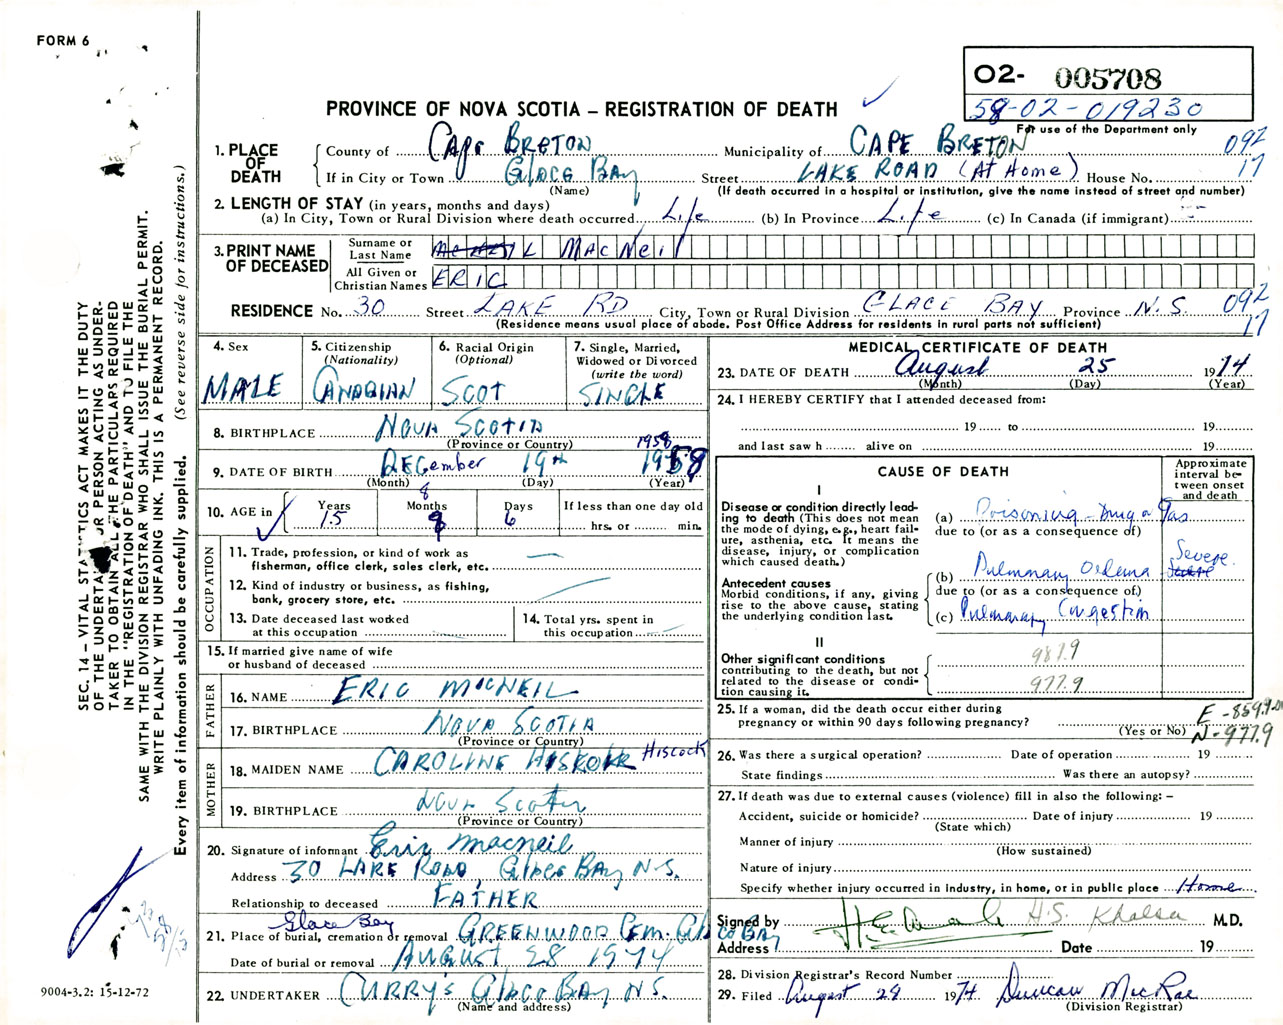 FORM 6
O2- 005708
58-02-019230
For use of the Department only
PROVINCE OF NOVA SCOTIA – REGISTRATION OF DEATH
1. PLACE OF DEATH
County of Cape Breton Municipality of CAPE BRETON 092
If in City or Town Glace Bay Street LAKE ROAD (At Home) House No. 17
(Name) (If death occurred in a hospital or institution, give the name instead of street and number)
2. LENGTH OF STAY (in years, months and days)
(a) In City, Town or Rural Division where death occurred Life (b) In Province Life (c) In Canada (if immigrant) -
3. PRINT NAME OF DECEASED
Surname or Last Name MacNeil
All Given or Christian Names ERIC
RESIDENCE No. 30 Street LAKE RD City, Town or Rural Division GLACE BAY Province N.S. 092
17
(Residence means usual place of abode. Post Office Address for residents in rural parts not sufficient)
4. Sex MALE
5. Citizenship (Nationality) CANADIAN
6. Racial Origin (Optional) SCOT
7. Single, Married, Widowed or Divorced (write the word) SINGLE
8. BIRTHPLACE NOVA SCOTIA
(Province or Country) 1958
9. DATE OF BIRTH DECember 19th 1958
(Month) (Day) (Year)
10. AGE in Years 15 Months 8 Days 6 If less than one day old hrs. or min.
OCCUPATION
11. Trade, profession, or kind of work as fisherman, office clerk, sales clerk, etc. —
12. Kind of industry or business, as fishing, bank, grocery store, etc.
13. Date deceased last worked at this occupation
14. Total yrs. spent in this occupation
15. If married give name of wife or husband of deceased
FATHER
16. NAME ERIC MACNEIL
17. BIRTHPLACE NOVA SCOTIA
(Province or Country)
MOTHER
18. MAIDEN NAME CAROLINE Hiscock
19. BIRTHPLACE NOVA SCOTIA
(Province or Country)
20. Signature of informant Eric MacNeil
Address 30 LAKE ROAD, GLACE BAY N.S.
Relationship to deceased FATHER
Glace Bay
21. Place of burial, cremation or removal GREENWOOD Cem. Glace Bay
Date of burial or removal AUGUST 28 1974
22. UNDERTAKER CURRY'S GLACE BAY N.S.
(Name and address)
MEDICAL CERTIFICATE OF DEATH
23. DATE OF DEATH August 25 1974
(Month) (Day) (Year)
24. I HEREBY CERTIFY that I attended deceased from:
19 to 19
and last saw h alive on 19
CAUSE OF DEATH
Approximate interval between onset and death
I
Disease or condition directly leading to death (This does not mean the mode of dying, e.g., heart failure, asthenia, etc. It means the disease, injury, or complication which caused death.)
(a) Poisoning - Drug or Gas
due to (or as a consequence of)
Antecedent causes
Morbid conditions, if any, giving rise to the above cause, stating the underlying condition last.
(b) Pulmonary Oedema Severe
due to (or as a consequence of)
(c) Pulmonary Congestion
II
Other significant conditions contributing to the death, but not related to the disease or condition causing it.
987.9
977.9
25. If a woman, did the death occur either during pregnancy or within 90 days following pregnancy?
(Yes or No)
N-977.9
26. Was there a surgical operation? Date of operation 19
State findings Was there an autopsy?
27. If death was due to external causes (violence) fill in also the following: –
Accident, suicide or homicide? Date of injury 19
(State which)
Manner of injury
(How sustained)
Nature of injury
Specify whether injury occurred in industry, in home, or in public place Home
Signed by H.S. Khalsa M.D.
Address Date 19
28. Division Registrar's Record Number
29. Filed August 28 1974 Duncan MacRae
(Division Registrar)
SEC. 14 – VITAL STATISTICS ACT MAKES IT THE DUTY
OF THE UNDERTAKER OR PERSON ACTING AS UNDER-
TAKER TO OBTAIN ALL THE PARTICULARS REQUIRED
IN THE "REGISTRATION OF DEATH" AND TO FILE THE
SAME WITH THE DIVISION REGISTRAR WHO SHALL ISSUE THE BURIAL PERMIT.
WRITE PLAINLY WITH UNFADING INK. THIS IS A PERMANENT RECORD.
Every item of information should be carefully supplied. (See reverse side for instructions.)
9004-3.2: 15-12-72